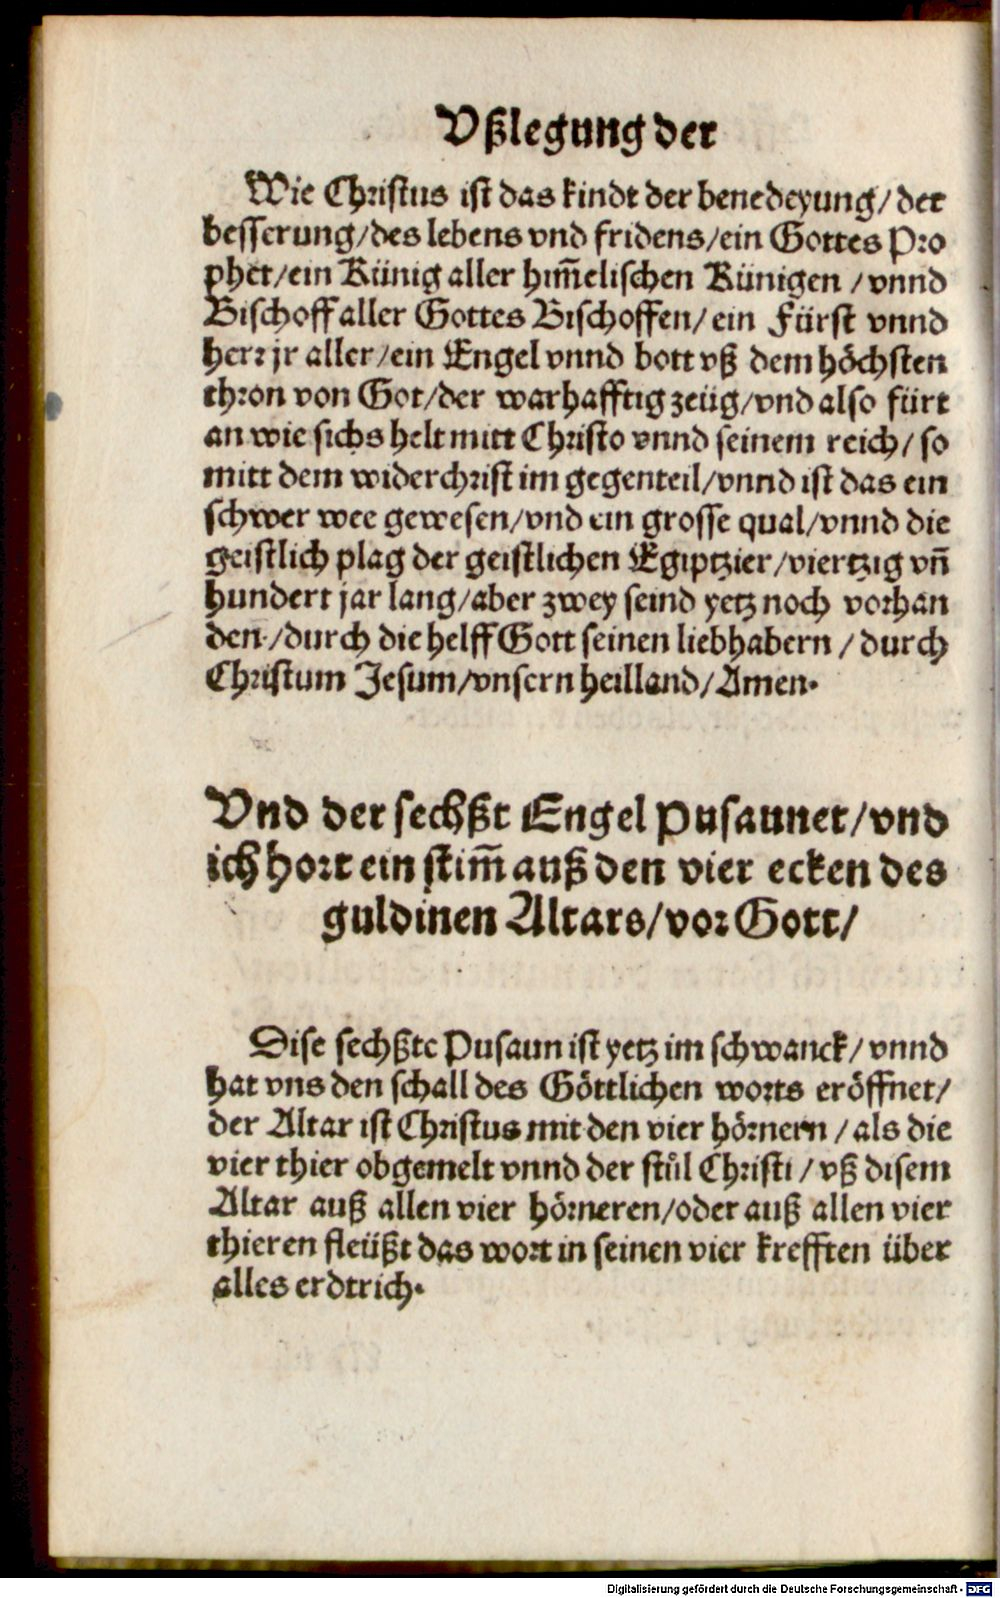 Vßlegung der
Wie Christus ist das kindt der benedeyung/ der
besserung/des lebens vnd fridens/ein Gottes Pro
phet/ein Künig aller him̃elischen Künigen /vnnd
Bischoff aller Gottes Bischoffen/ ein Fürst vnnd
herr jr aller/ein Engel vnnd bott vß dem höchsten
thron von Got/der warhafftig zeüg/vnd also fürt
an wie sichs helt mitt Christo vnnd seinem reich/ so
mitt dem widerchrist im gegenteil/vnnd ist das ein
schwer wee gewesen/vnd ein grosse qual/vnnd die
geistlich plag der geistlichen Egiptzier/viertzig vñ
hundert jar lang/aber zwey seind yetz noch vorhan
den/durch die helff Gott seinen liebhabern / durch
Christum Jesum/vnsern heilland/Amen.
Vnd der sechßt Engel Pusaunet/vnd
ich hort ein stim̃ auß den vier ecken des
guldinen Altars/vor Gott/
Dise sechßte Pusaun ist yetz im schwanck/ vnnd
hat vns den schall des Göttlichen worts eröffnet/
der Altar ist Christus mit den vier hörnern / als die
vier thier obgemelt vnnd der stůl Christi / vß disem
Altar auß allen vier hörneren/oder auß allen vier
thieren fleüßt das wort in seinen vier krefften über
alles erdtrich.
Digitalisierung gefördert durch die Deutsche Forschungsgemeinschaft - DFG